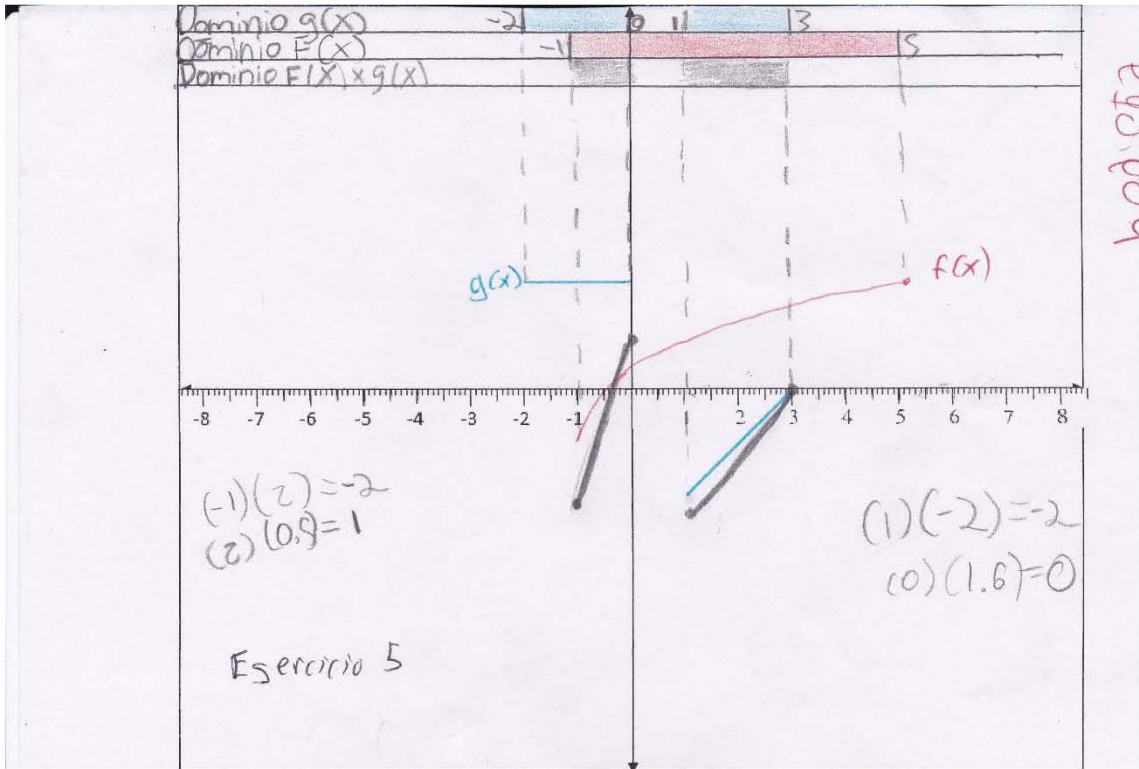 Dominio g(x) -2 0 1 3
Dominio F(x) -1 5
Dominio F(x) x g(x)
g(x)
f(x)
-8 -7 -6 -5 -4 -3 -2 -1 1 2 3 4 5 6 7 8
(-1)(2)=-2
(2)(0,5)=1
(1)(-2)=-2
(0)(1.6)=0
Esercicio 5